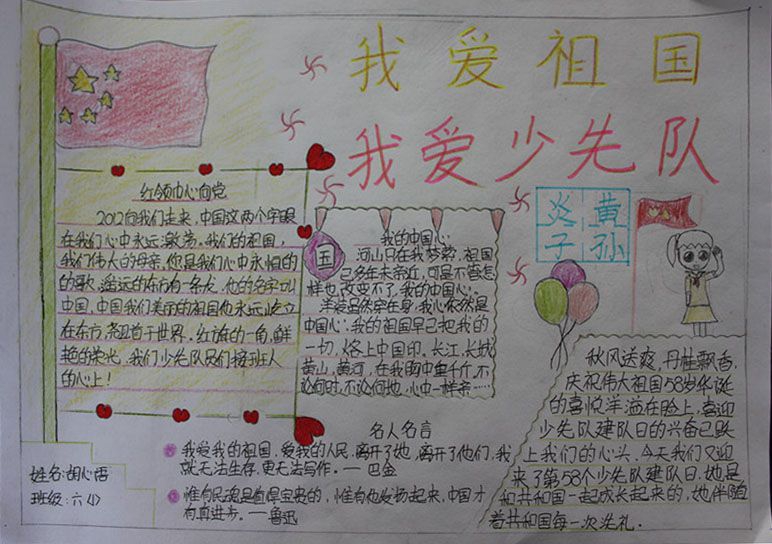 我爱祖国
我爱少先队
红领巾心向党
2012向我们走来,中国这两个字眼
在我们心中永远激荡。我们的祖国,
我们伟大的母亲,你是我们心中永恒的
的歌。遥远的东方有一条龙,他的名字叫
中国,中国我们美丽的祖国他永远屹立
在东方,翘首于世界。红旗的一角,鲜
艳的荣光,我们少先队员们接班人
的心上!
国
我的中国心
河山只在我梦萦,祖国
已多年未亲近,可是不管怎
样也改变不了,我的中国心。
洋装虽然穿在身,我心依然是
中国心:我的祖国早已把我的
一切,烙上中国印。长江,长城
黄山,黄河,在我胸中重千斤,不
论何时,不论何地,心中一样亲……
炎黄
子孙
秋风送爽,丹桂飘香,
庆祝伟大祖国58岁华诞
的喜悦洋溢在脸上,喜迎
少先队建队日的兴奋已跃
上我们的心头,今天我们又迎
来了第58个少先队建队日,她是
和共和国一起成长起来的,她伴随
着共和国每一次洗礼.
名人名言
我爱我的祖国,爱我的人民,离开了她,离开了他们,我
就无法生存,更无法写作。——巴金
惟有民魂是值得宝贵的,惟有他发扬起来,中国才
有真进步。——鲁迅
姓名:胡心语
班级:六(1)